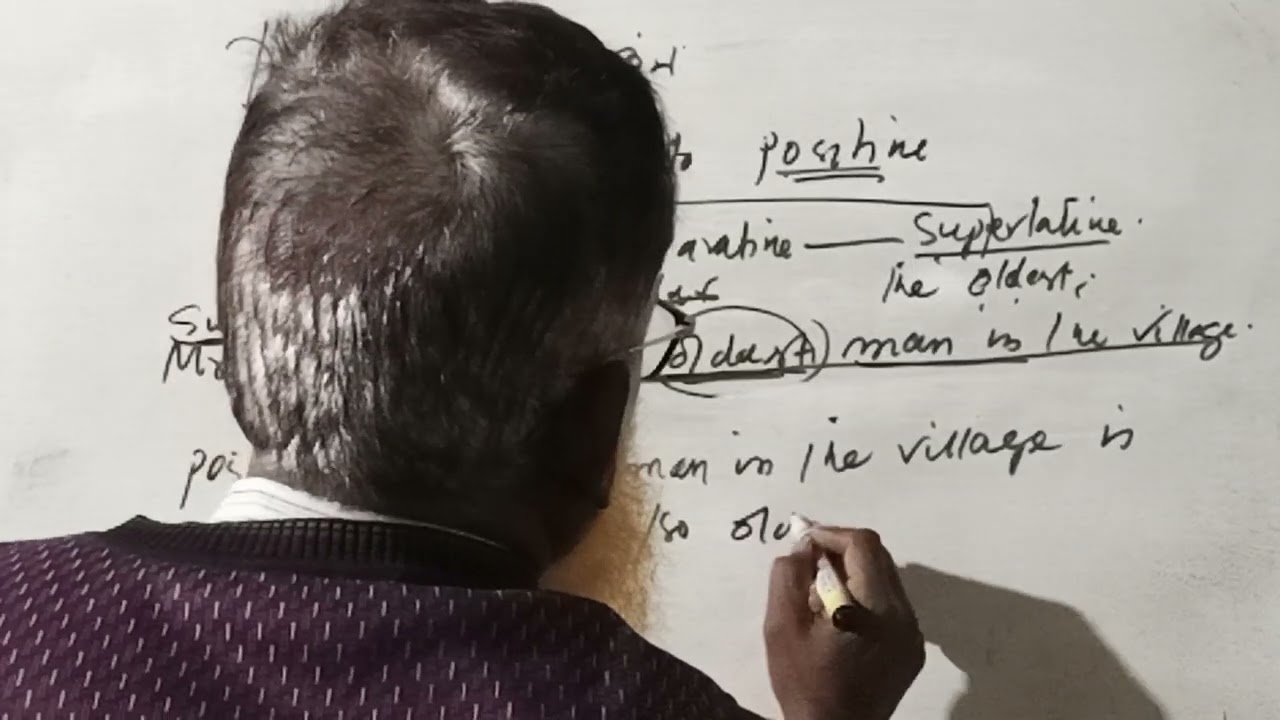 to positive
arative — Superlative.
the oldest,
Su
Mr oldest) man in the village.
poi man in the village is
so old